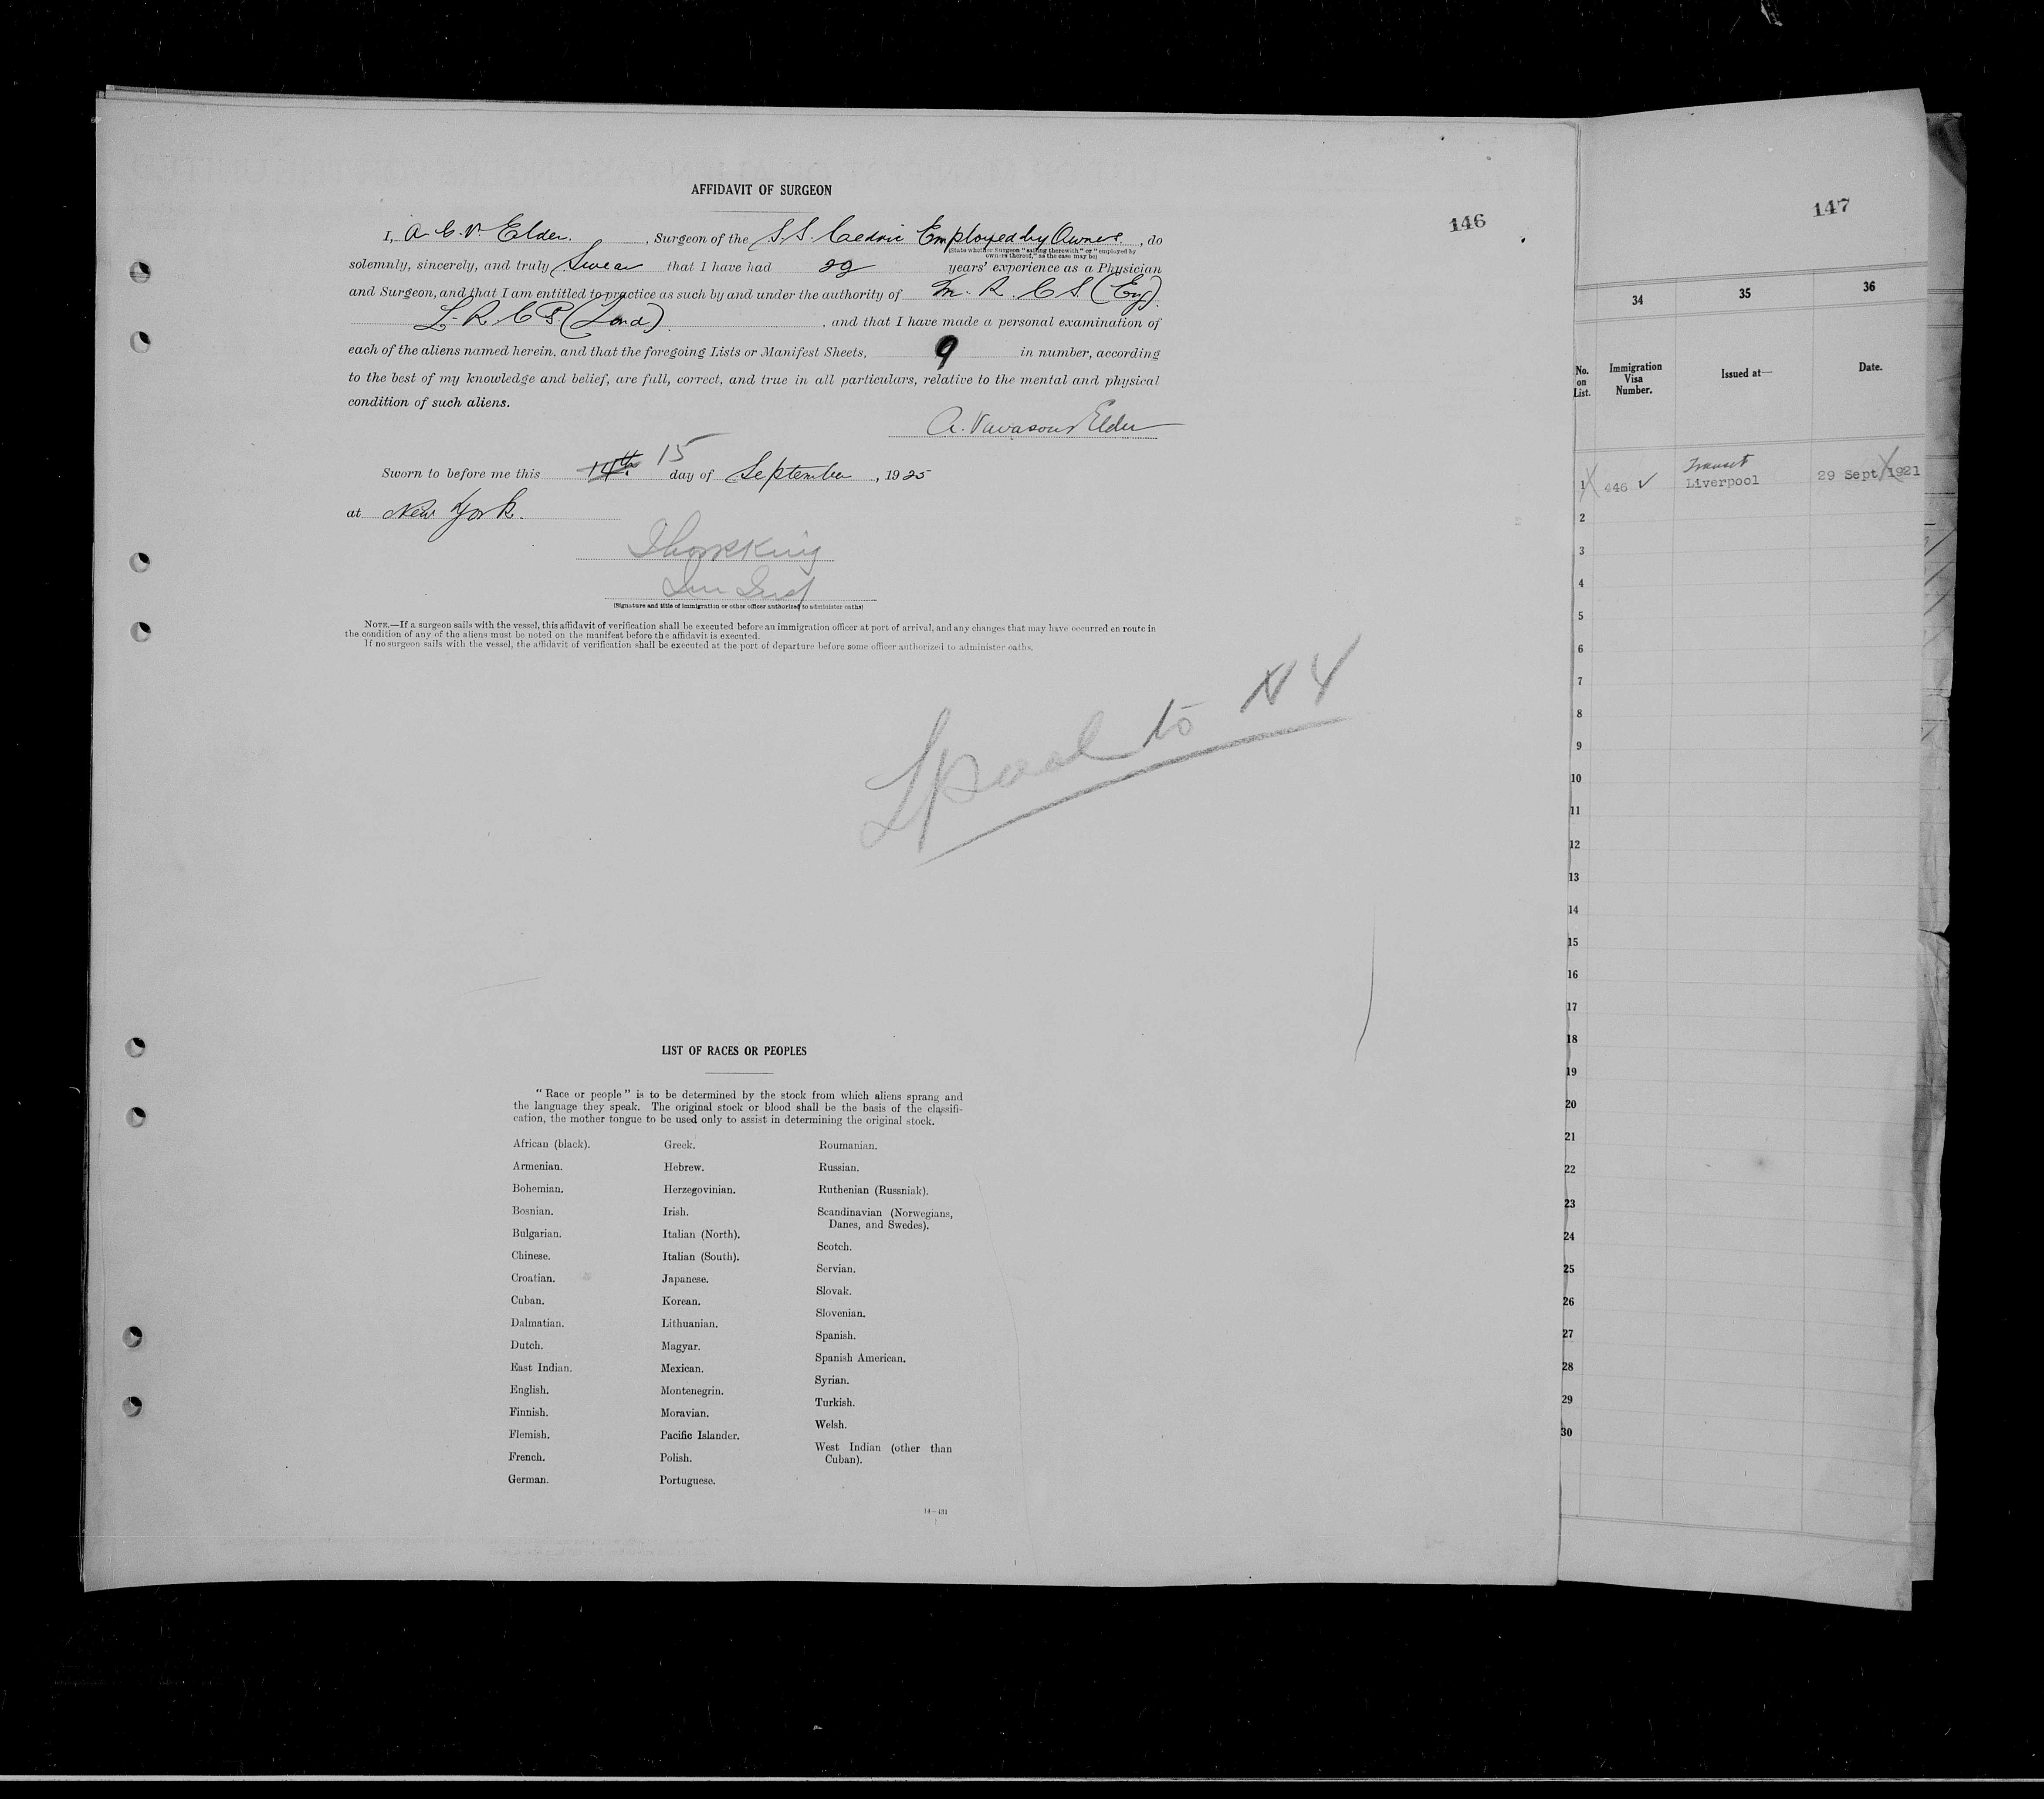 AFFIDAVIT OF SURGEON
146
I, A. C. V. Elder. , Surgeon of the S.S. Cedric Employed by Owners , do
(State whether Surgeon "sailing therewith" or "employed by
owners thereof," as the case may be)
solemnly, sincerely, and truly Swear that I have had 29 years' experience as a Physician
and Surgeon, and that I am entitled to practice as such by and under the authority of M. R. C S. (Eng).
L. R. C P. (Lond) , and that I have made a personal examination of
each of the aliens named herein, and that the foregoing Lists or Manifest Sheets, 9 in number, according
to the best of my knowledge and belief, are full, correct, and true in all particulars, relative to the mental and physical
condition of such aliens.
A. Vavasour Elder
Sworn to before me this 14th 15 day of September , 1925
at New York.
(Signature and title of immigration or other officer authorized to administer oaths)
NOTE.—If a surgeon sails with the vessel, this affidavit of verification shall be executed before an immigration officer at port of arrival, and any changes that may have occurred en route in
the condition of any of the aliens must be noted on the manifest before the affidavit is executed.
If no surgeon sails with the vessel, the affidavit of verification shall be executed at the port of departure before some officer authorized to administer oaths.
Lpool to NY
LIST OF RACES OR PEOPLES
"Race or people" is to be determined by the stock from which aliens sprang and
the language they speak. The original stock or blood shall be the basis of the classifi-
cation, the mother tongue to be used only to assist in determining the original stock.
African (black).
Armenian.
Bohemian.
Bosnian.
Bulgarian.
Chinese.
Croatian.
Cuban.
Dalmatian.
Dutch.
East Indian.
English.
Finnish.
Flemish.
French.
German.
Greek.
Hebrew.
Herzegovinian.
Irish.
Italian (North).
Italian (South).
Japanese.
Korean.
Lithuanian.
Magyar.
Mexican.
Montenegrin.
Moravian.
Pacific Islander.
Polish.
Portuguese.
Roumanian.
Russian.
Ruthenian (Russniak).
Scandinavian (Norwegians,
Danes, and Swedes).
Scotch.
Servian.
Slovak.
Slovenian.
Spanish.
Spanish American.
Syrian.
Turkish.
Welsh.
West Indian (other than
Cuban).
14—431
147
34 35 36
No.
on
List.
Immigration
Visa
Number.
Issued at—
Date.
Transit
1 446 ✓ Liverpool 29 Sept 1921
2
3
4
5
6
7
8
9
10
11
12
13
14
15
16
17
18
19
20
21
22
23
24
25
26
27
28
29
30